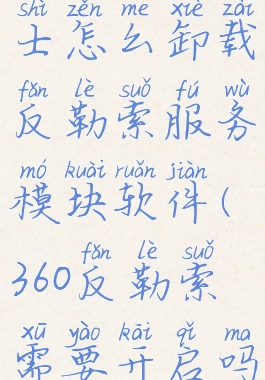 shì zěn me xiè zài
士怎么卸载
fǎn lè suǒ fú wù
反勒索服务
mó kuài ruǎn jiàn
模块软件(
fǎn lè suǒ
360反勒索
xū yào kāi qǐ ma
需要开启吗